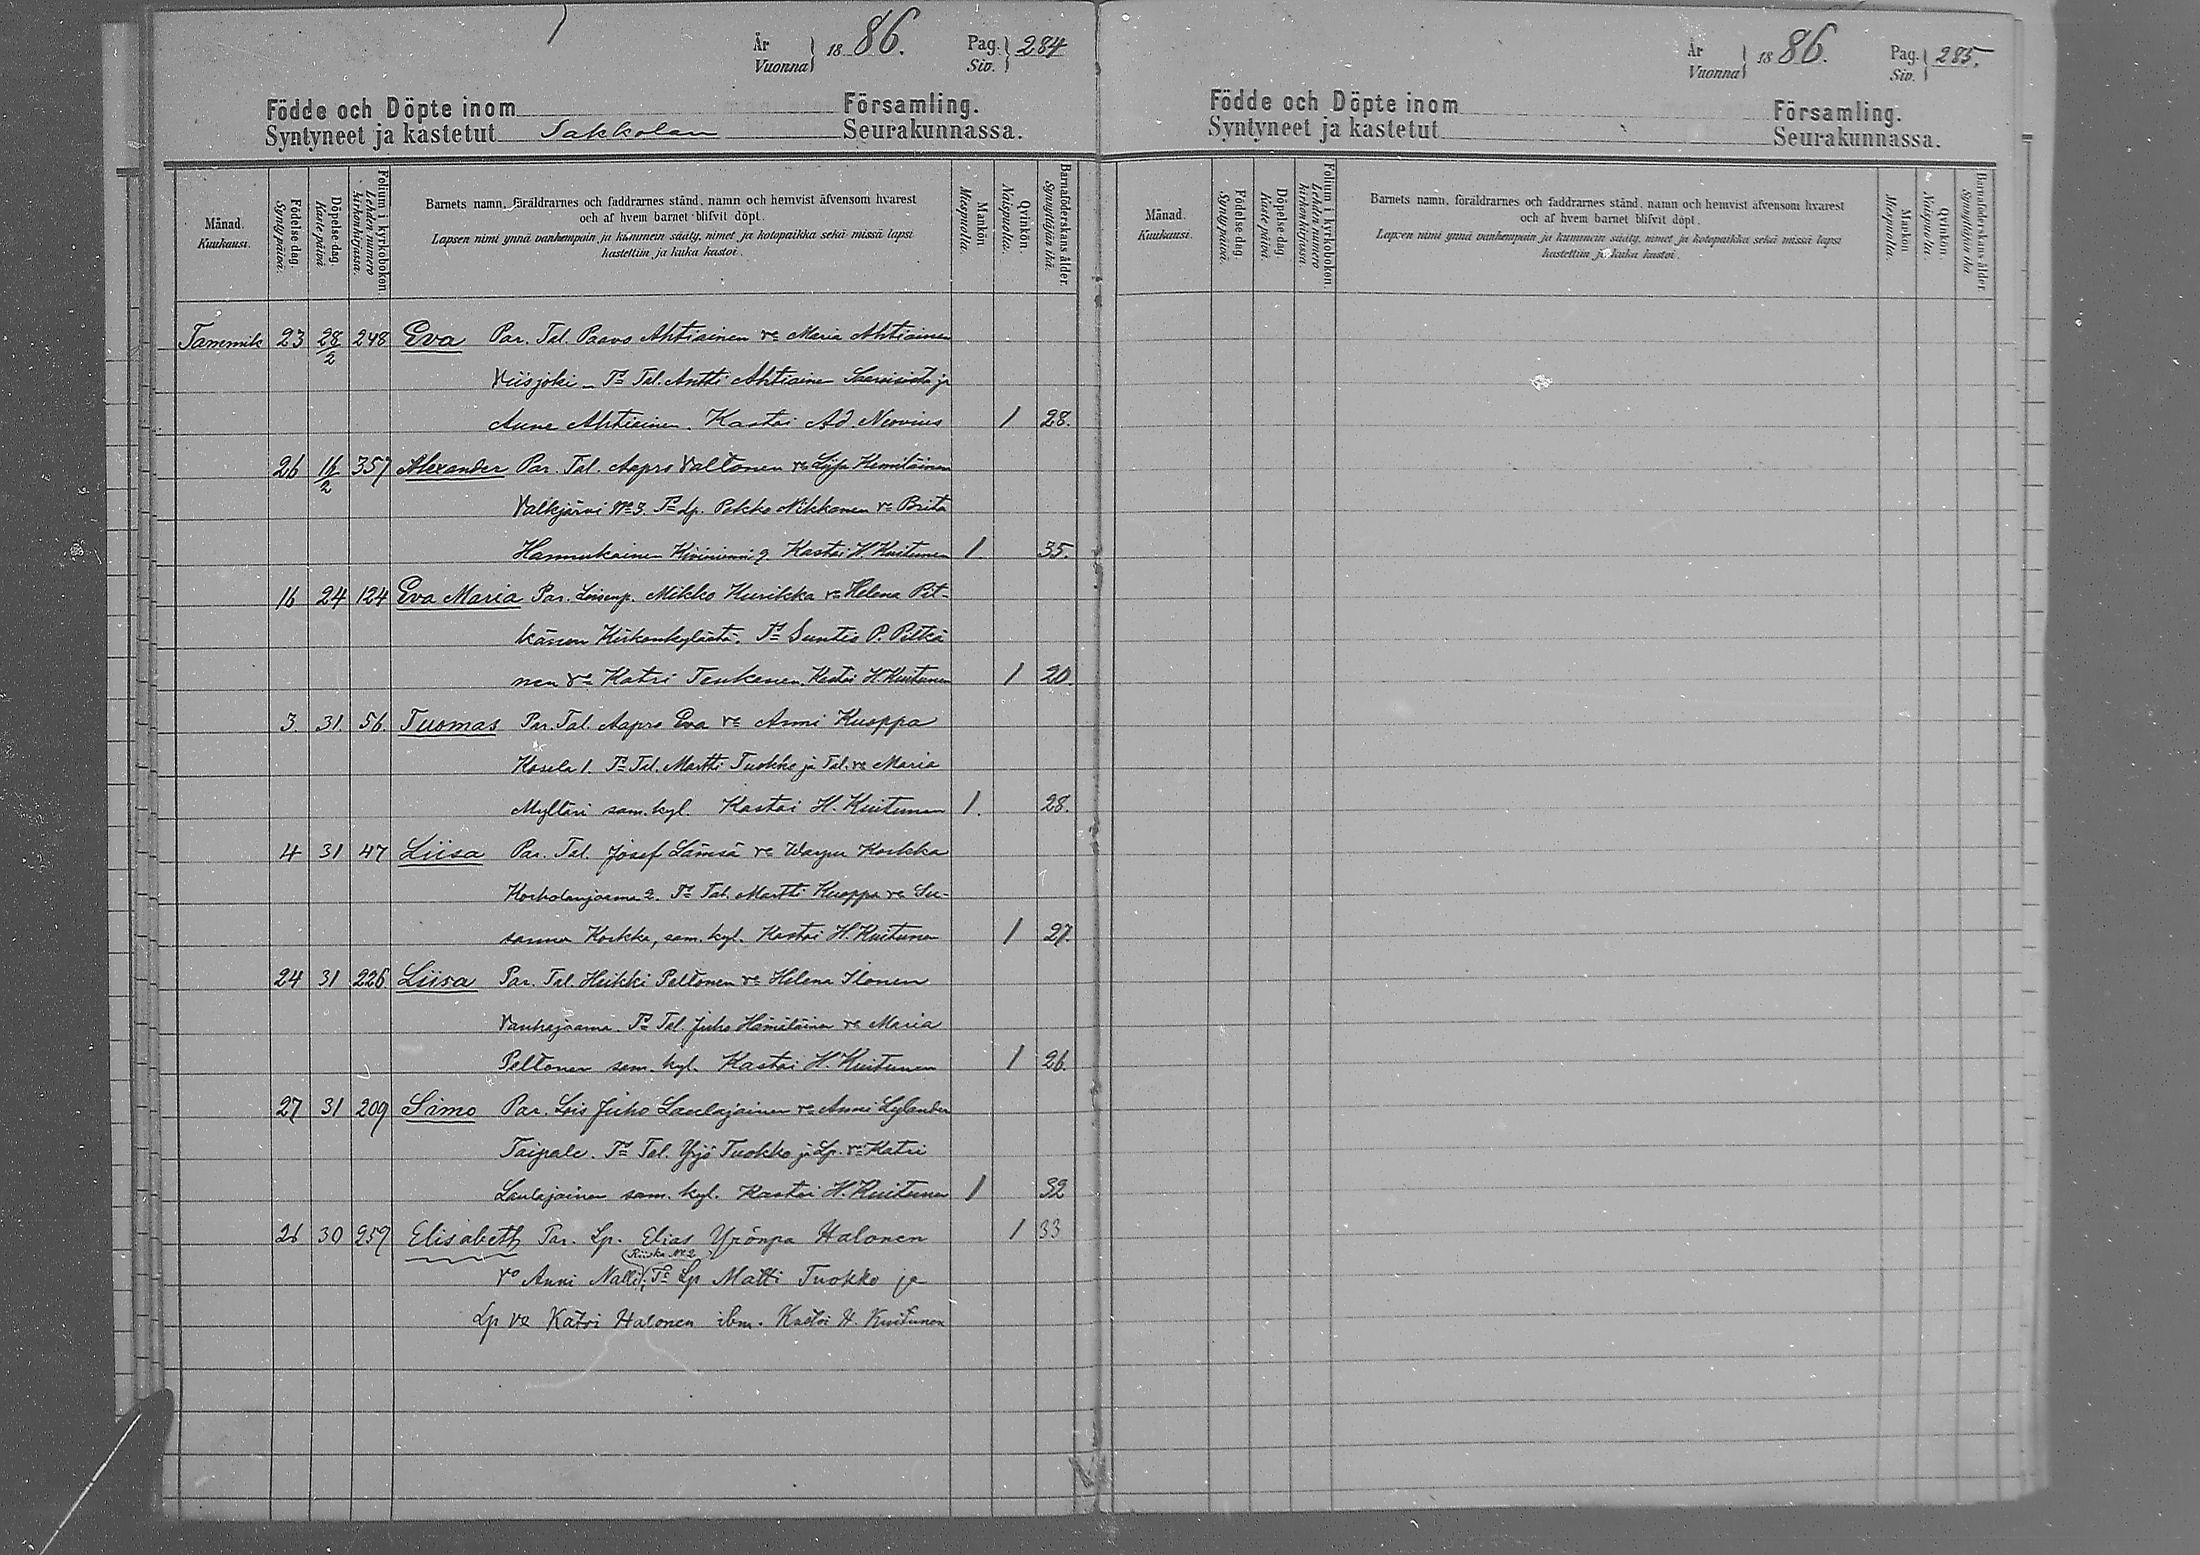 År
Vuonna } 18 86. Pag.
Siv. } 284
Födde och Döpte inom Församling.
Syntyneet ja kastetut Sakkolan Seurakunnassa.
Månad.
Kuukausi.
Födelse dag.
Synty päivä.
Döpelse dag.
Kaste päivä
Folium i kyrkoboken.
Lehden numero
kirkonkirjassa.
Barnets namn, föräldrarnes och faddrarnes stånd, namn och hemvist äfvensom hvarest
och af hvem barnet blifvit döpt.
Lapsen nimi ynnä vanhempain ja kummein sääty, nimet ja kotopaikka sekä missä lapsi
kastettiin ja kuka kastoi.
Mankön.
Miespuolia.
Qvinkön.
Naispuolia.
Barnaföderskans ålder.
Synnyttäjän ikä.
Tammik 23 28/2 248 Eva Par. Tal. Paavo Ahtiainen vo Maria Ahtiainen
Viisjoki - Td Tal. Antti Ahtiaine ja
Anna Ahtiainen. Kastoi Ad. Neovius 1 28.
26 16/2 357 Alexander Par. Tal. Aapro Valtonen vo Liisa Hämäläinen
Valkjärvi No 3. Td Lp. Pekko Nikkanen vo Brita
Hannukainen Kiviniemi 2. Kastoi H Kuitunen 1. 35.
16 24 124 Eva Maria Par. Mikko Kurikka vo Helena Pit-
känen Kirkonkylästä. Td Suntio P. Pitkä
nen vo Katri Teukanen. Kastoi H Kuitunen 1 20.
3. 31. 56. Tuomas Par. Tal. Aapro Eva vo Anni Kuoppa
Kasela 1. Td Tal. Martti Tuokko ja Tal. vo Maria
Mylläri sam. kyl. Kastoi H. Kuitunen 1. 28.
4 31 47 Liisa Par. Tal. Josef Lämsä vo Warpu Korkka
2. Td Tal. Martti Kuoppa vo Su-
sanna Korkka, sam. kyl. Kastoi H. Kuitunen 1 27.
24 31 226 Liisa Par. Tal. Heikki Peltonen vo Helena Ilonen
Vanhajaama Td Tal. Juho Hämäläinen vo Maria
Peltonen sam. kyl. Kastoi H. Kuitunen 1 26.
27 31 209 Simo Par. Lois Juho Laulajainen vo Anni Lylander
Taipale. Td Tal. Yrjö Tuokko ja Lp. vo Katri
Laulajainen sam. kyl. Kastoi H. Kuitunen 1 32
26 30 259 Elisabeth Par. Lp. Elias Yrönpa Halonen 1 33
(Riiska No 2)
vo Anni Nalli, Td Lp Matti Tuokko ja
Lp vo Katri Halonen ibm. Kastoi H. Kuitunen
År
Vuonna } 18 86. Pag.
Siv. } 285.
Födde och Döpte inom Församling.
Syntyneet ja kastetut Seurakunnassa.
Månad.
Kuukausi.
Födelse dag.
Synty päivä.
Döpelse dag.
Kaste päivä.
Folium i kyrkoboken.
Lehden numero
kirkonkirjassa.
Barnets namn, föräldrarnes och faddrarnes stånd, namn och hemvist äfvensom hvarest
och af hvem barnet blifvit döpt.
Lapsen nimi ynnä vanhempain ja kummein sääty, nimet ja kotopaikka sekä missä lapsi
kastettiin ja kuka kastoi.
Mankön.
Miespuolia.
Qvinkön.
Naispuolia.
Barnaföderskans ålder.
Synnyttäjän ikä